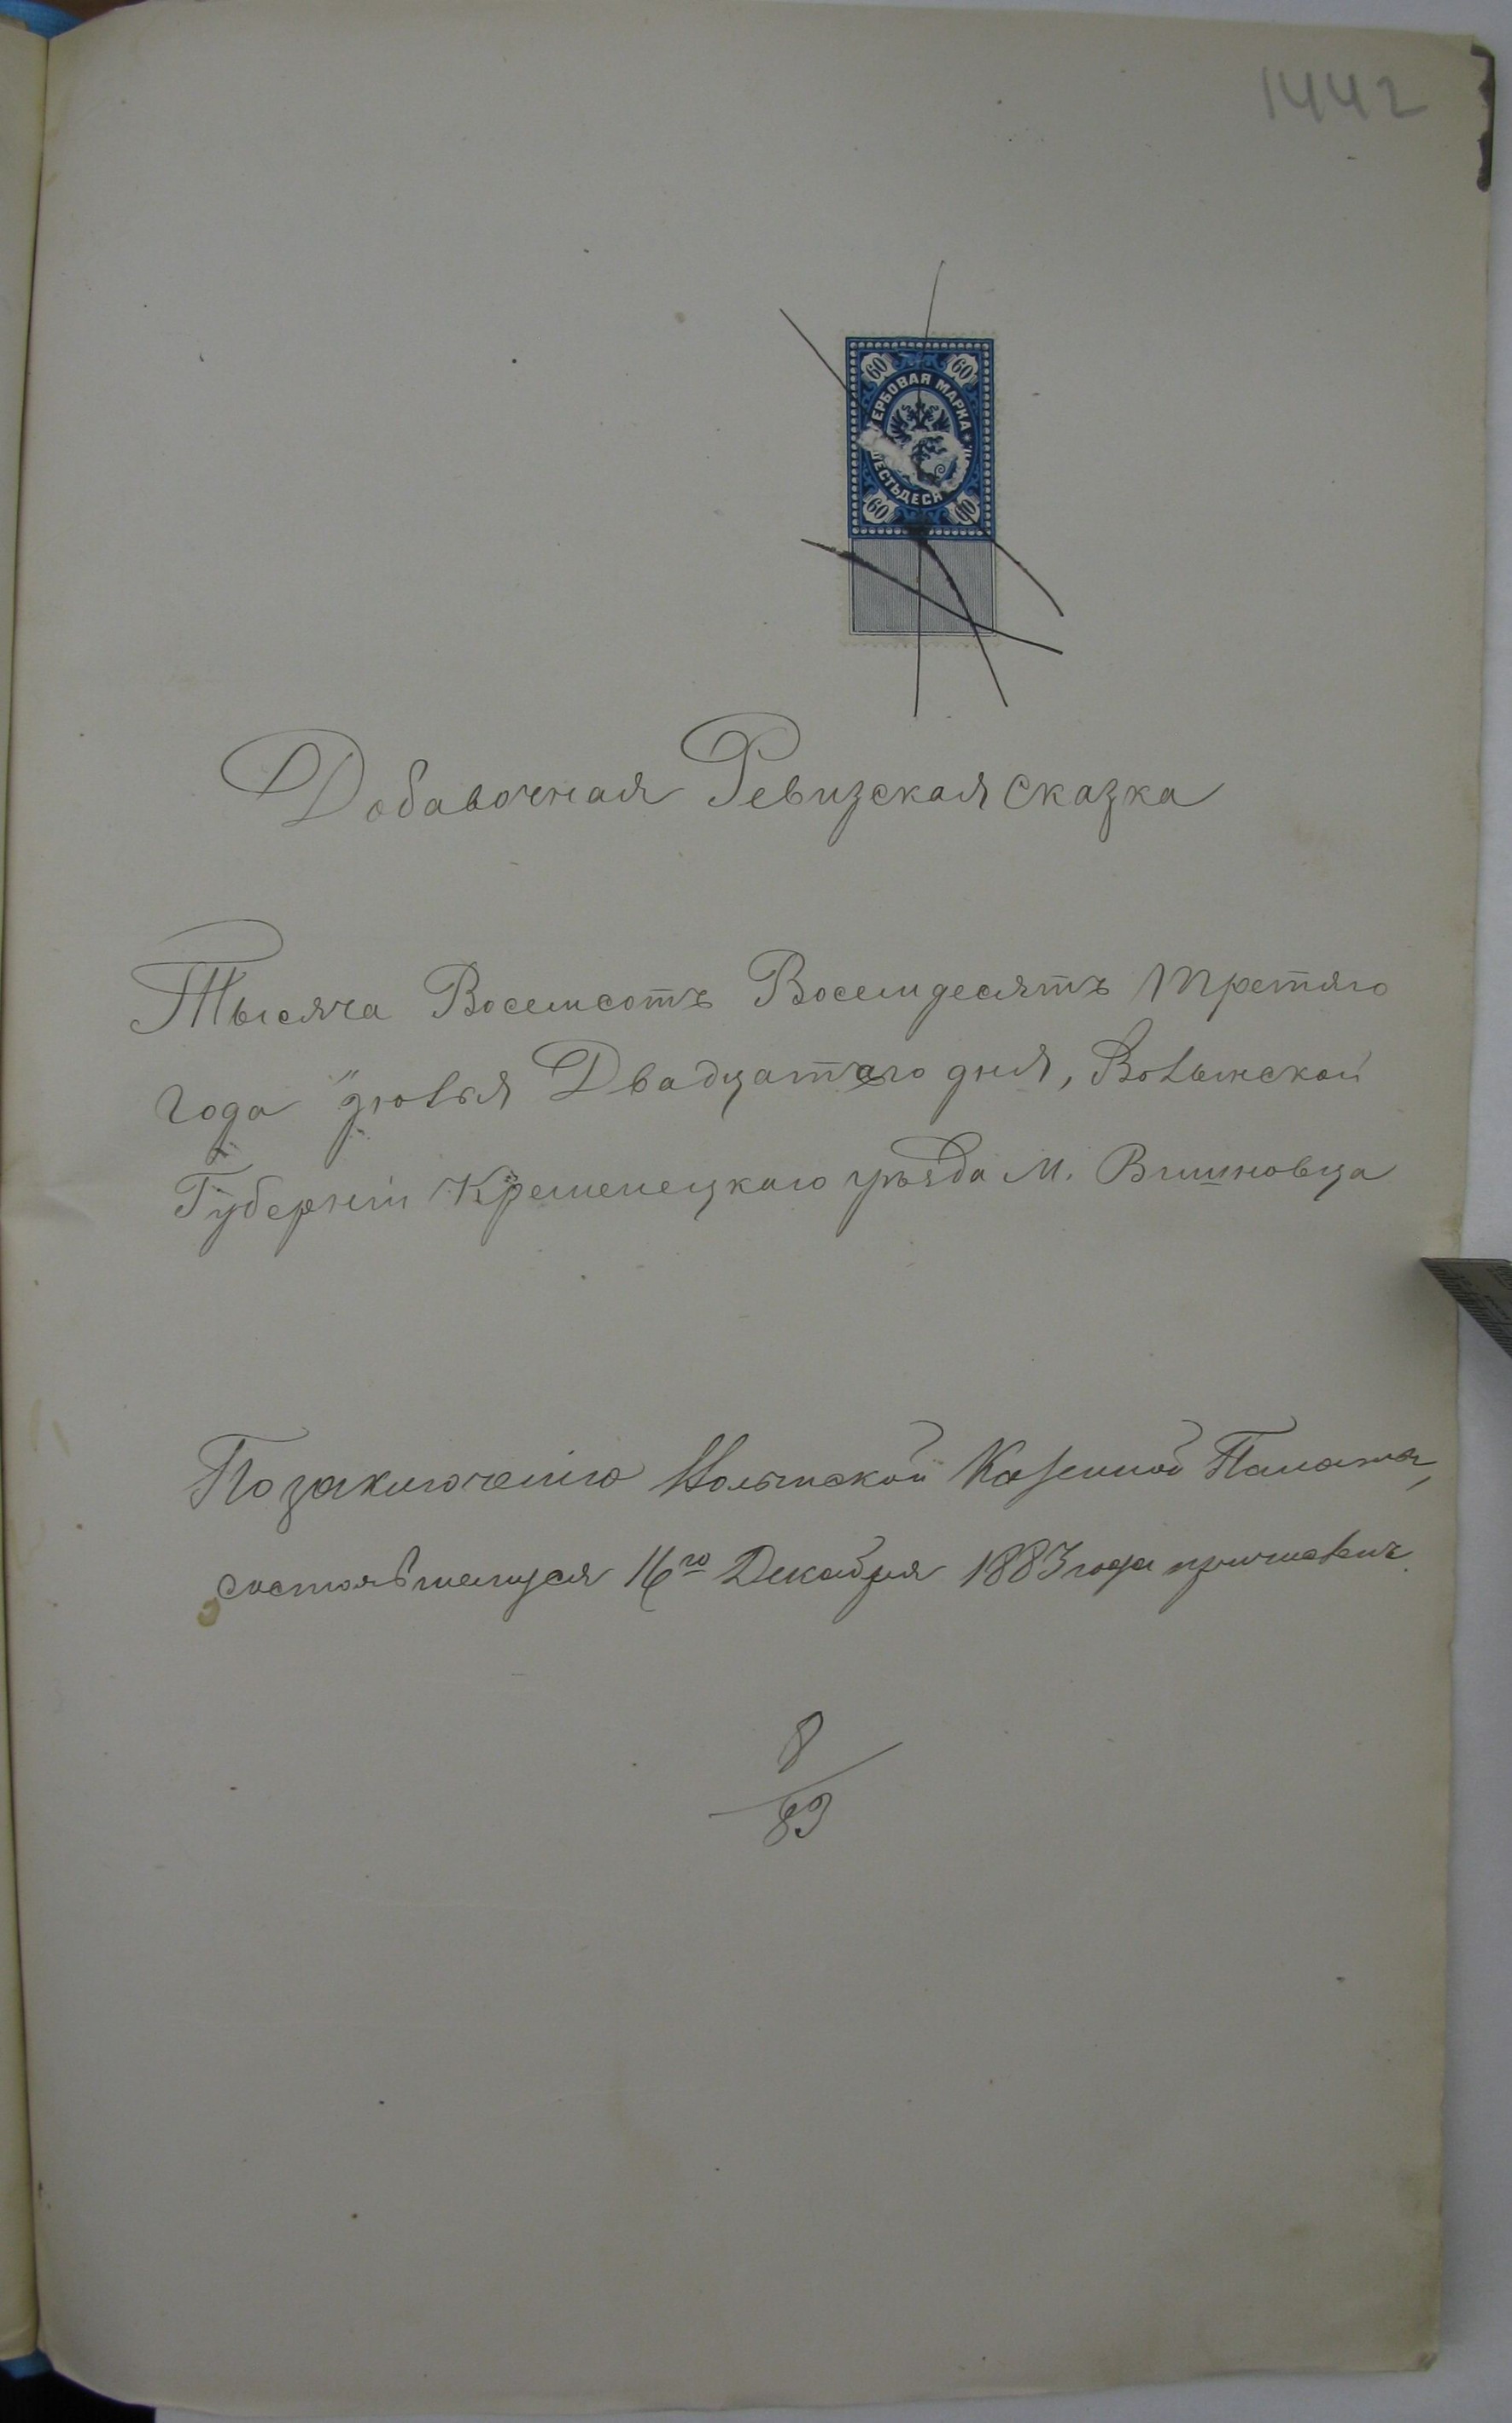 1442
60 60
ГЕРБОВАЯ МАРКА
ШЕСТЬДЕСЯ
60 60
Добавочная Ревизская сказка
Тысяча Восемсотъ Восемдесятъ третяго
года Іюля Двадцатого дня, Волынской
Губерніи Кременецкаго уѣзда м. Вишновца
По заключенію Волынской Казенной Палаты,
состоявшемуся 16го Декабря 1883 года причислен
8
83